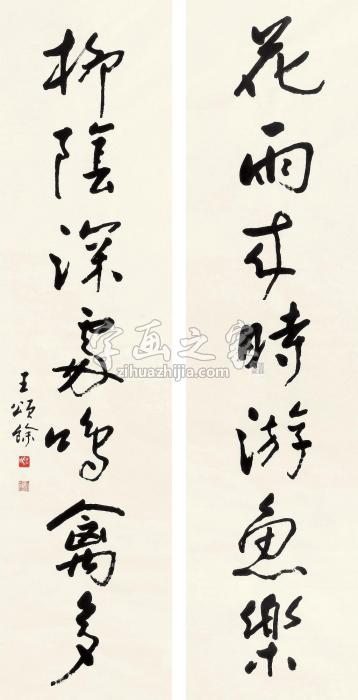 花雨來時游魚樂
柳陰深處鳴禽多
王頌餘
字画之家
zihuazhijia.com